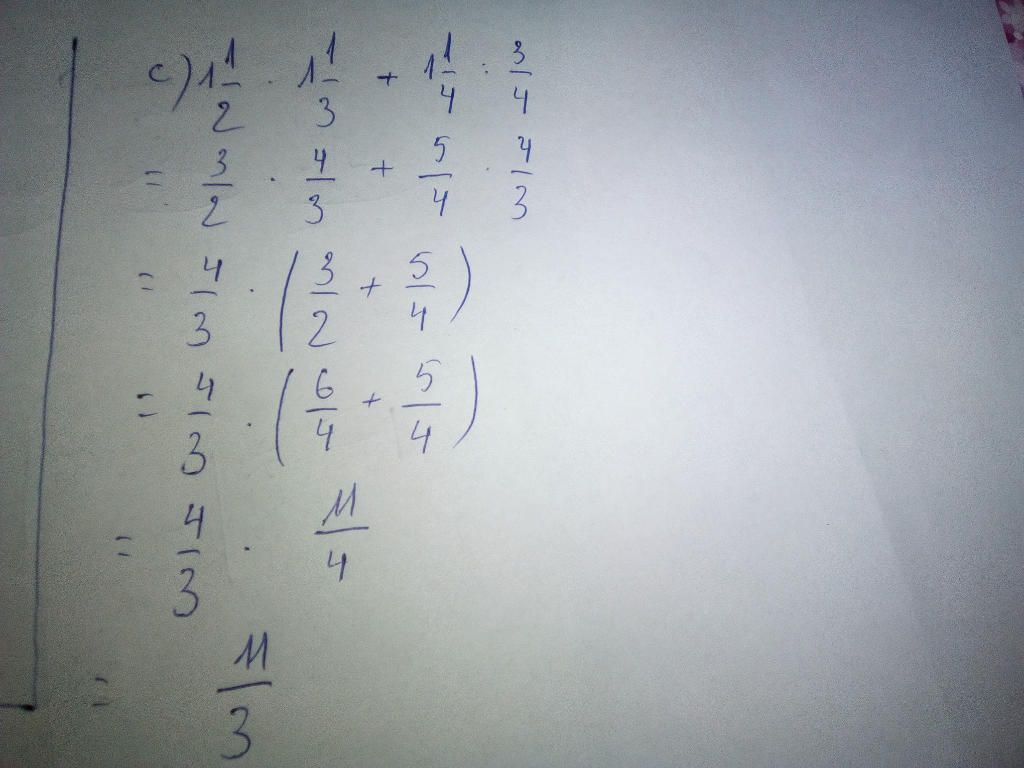 c) 1 1/2 · 1 1/3 + 1 1/4 : 3/4
= 3/2 · 4/3 + 5/4 · 4/3
= 4/3 · (3/2 + 5/4)
= 4/3 · (6/4 + 5/4)
= 4/3 · 11/4
= 11/3